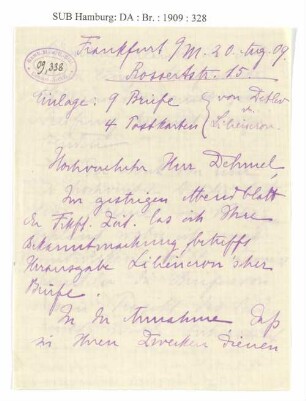 SUB Hamburg: DA : Br. : 1909 : 328
09,328
Frankfurt a/M. 20. Aug. 09.
Rossertstr. 15.
Einlage: 9 Briefe von Detlev
4 Postkarten v. Liliencron.
Hochverehrter Herr Dehmel,
Im gestrigen Abendblatt
der Frkft. Zeit. las ich Ihre
Bekanntmachung betreffs
Herausgabe Liliencron'scher
Briefe.
In der Annahme daß
es Ihren Zwecken dienen